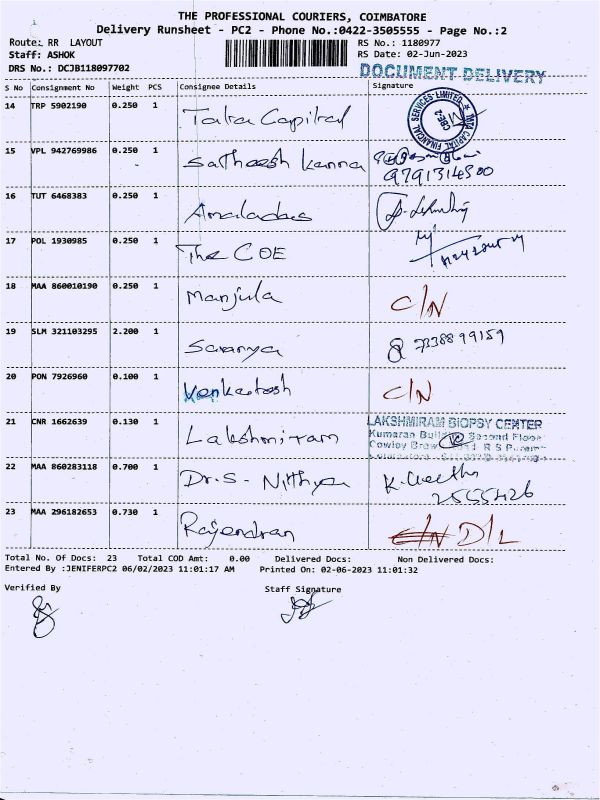 THE PROFESSIONAL COURIERS, COIMBATORE
Delivery Runsheet - PC2 - Phone No.:0422-3505555 - Page No.:2
Route: RR LAYOUT RS No.: 1180977
Staff: ASHOK RS Date: 02-Jun-2023
DRS No.: DCJB118097702 DOCUMENT DELIVERY
S No Consignment No Weight PCS Consignee Details Signature
14 TRP 5902190 0.250 1 Tata Capital TATA CAPITAL FINANCIAL SERVICES LIMITED CBE-2
15 VPL 942769986 0.250 1 Satheesh Kanna
9791314500
16 TUT 6468383 0.250 1 Amaladas
17 POL 1930985 0.250 1 The COE
18 MAA 860010190 0.250 1 Manjula C/N
19 SLM 321103295 2.200 1 Saranya 7338899159
20 PON 7926960 0.100 1 Venkatesh C/N
21 CNR 1662639 0.130 1 Lakshmiram LAKSHMIRAM BIOPSY CENTER
Kumaran Second Floor
Cowley Brown R S Puram
22 MAA 860283118 0.700 1 Dr.S- Nithya K. Geetha
2555426
23 MAA 296182653 0.730 1 Rajendran C/N D/L
Total No. Of Docs: 23 Total COD Amt: 0.00 Delivered Docs: Non Delivered Docs:
Entered By :JENIFERPC2 06/02/2023 11:01:17 AM Printed On: 02-06-2023 11:01:32
Verified By Staff Signature